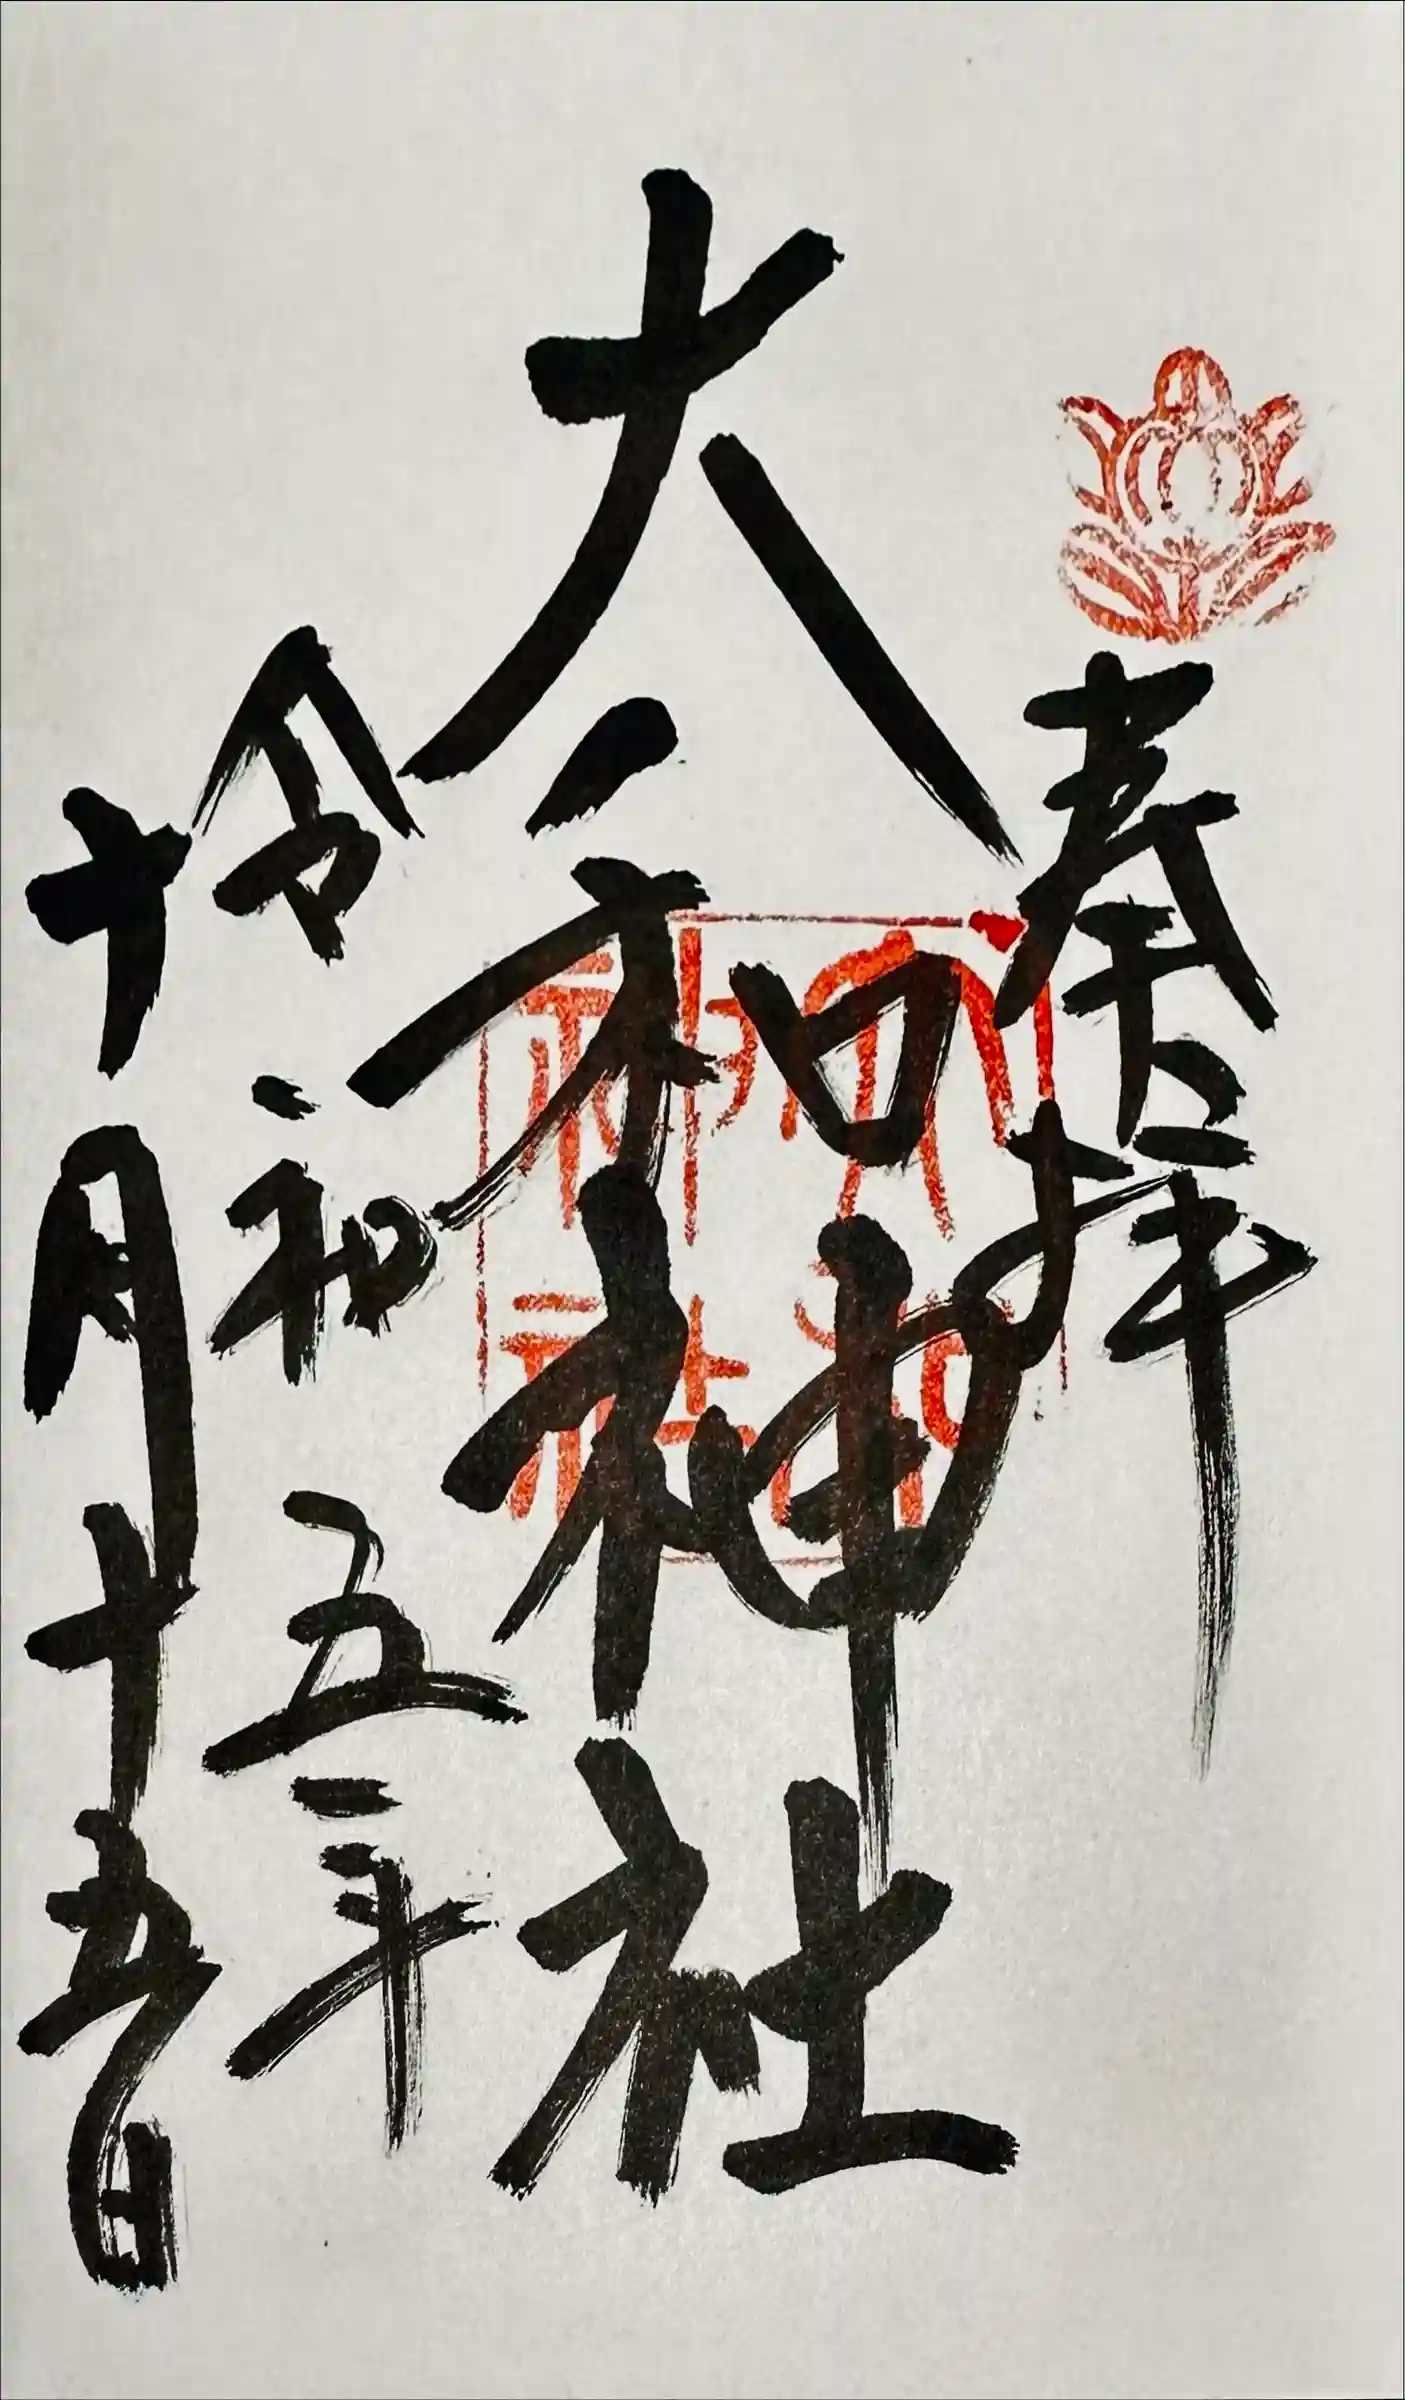 奉拝
大和神社
大和神社
令和五年
十月十五日